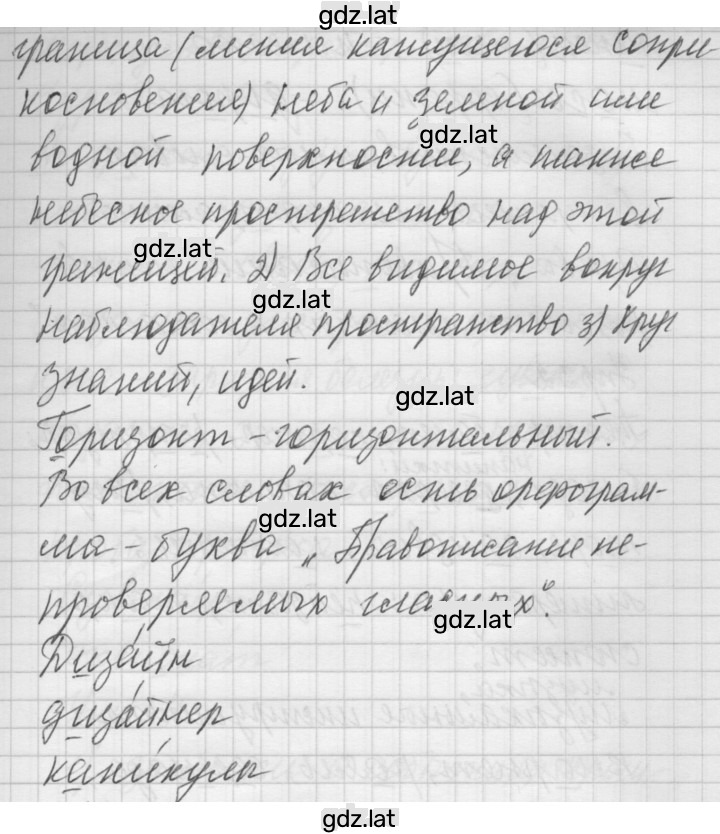 gdz.lat
граница (линия кажущегося сопри
косновения) неба и земной или
gdz.lat
водной поверхности, а также
небесное пространство над этой
gdz.lat
границей. 2) Все видимое вокруг
gdz.lat
наблюдателя пространство 3) Круг
знаний, идей.
gdz.lat
Горизонт - горизонтальный.
Во всех словах есть орфограм-
gdz.lat
ма - буква „Правописание не-
проверяемых гласных".
gdz.lat
Диза́йн
диза́йнер
кани́кулы
gdz.lat